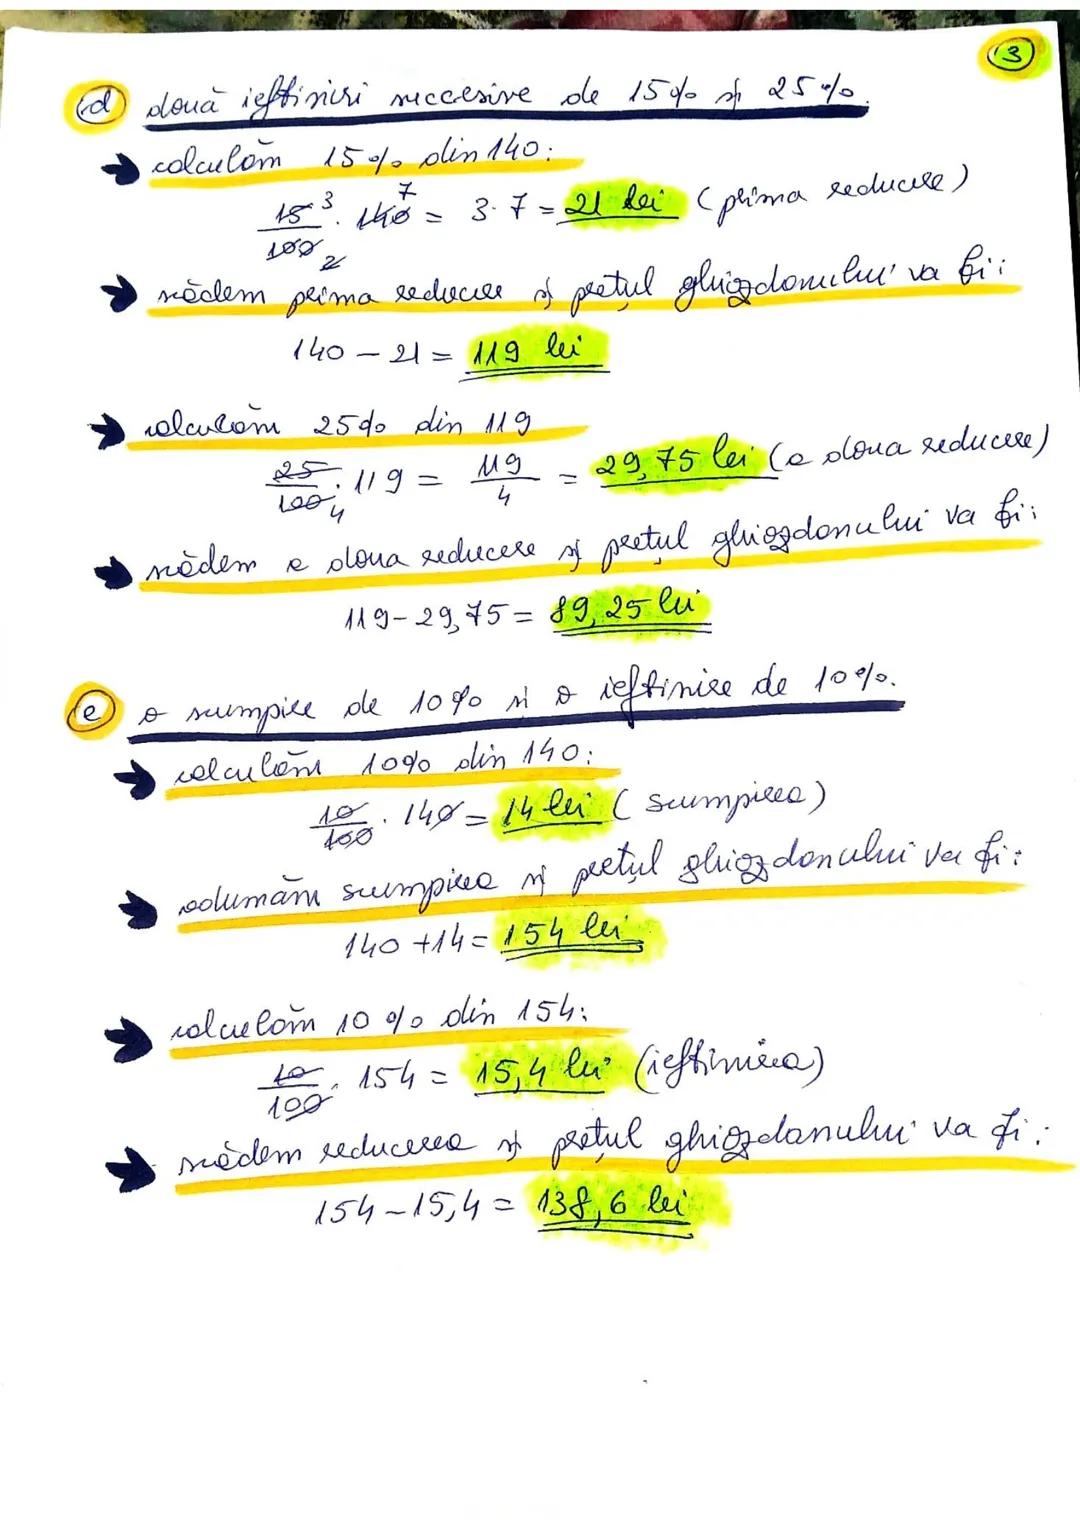 3
d) două ieftiniri succesive de 15% și 25%.
calculăm 15% din 140:
15/100 · 140 = 3·7 = 21 lei (prima reducere)
3 7 2
scădem prima reducere și prețul ghiozdanului va fi:
140 - 21 = 119 lei
calculăm 25% din 119
25/100 · 119 = 119/4 = 29,75 lei (a doua reducere)
4
scădem a doua reducere și prețul ghiozdanului va fi:
119 - 29,75 = 89,25 lei
e) o scumpire de 10% și o ieftinire de 10%.
calculăm 10% din 140:
10/100 · 140 = 14 lei (scumpirea)
adunăm scumpirea și prețul ghiozdanului va fi:
140 + 14 = 154 lei
calculăm 10% din 154:
10/100 · 154 = 15,4 lei (ieftinirea)
scădem reducerea și prețul ghiozdanului va fi:
154 - 15,4 = 138,6 lei